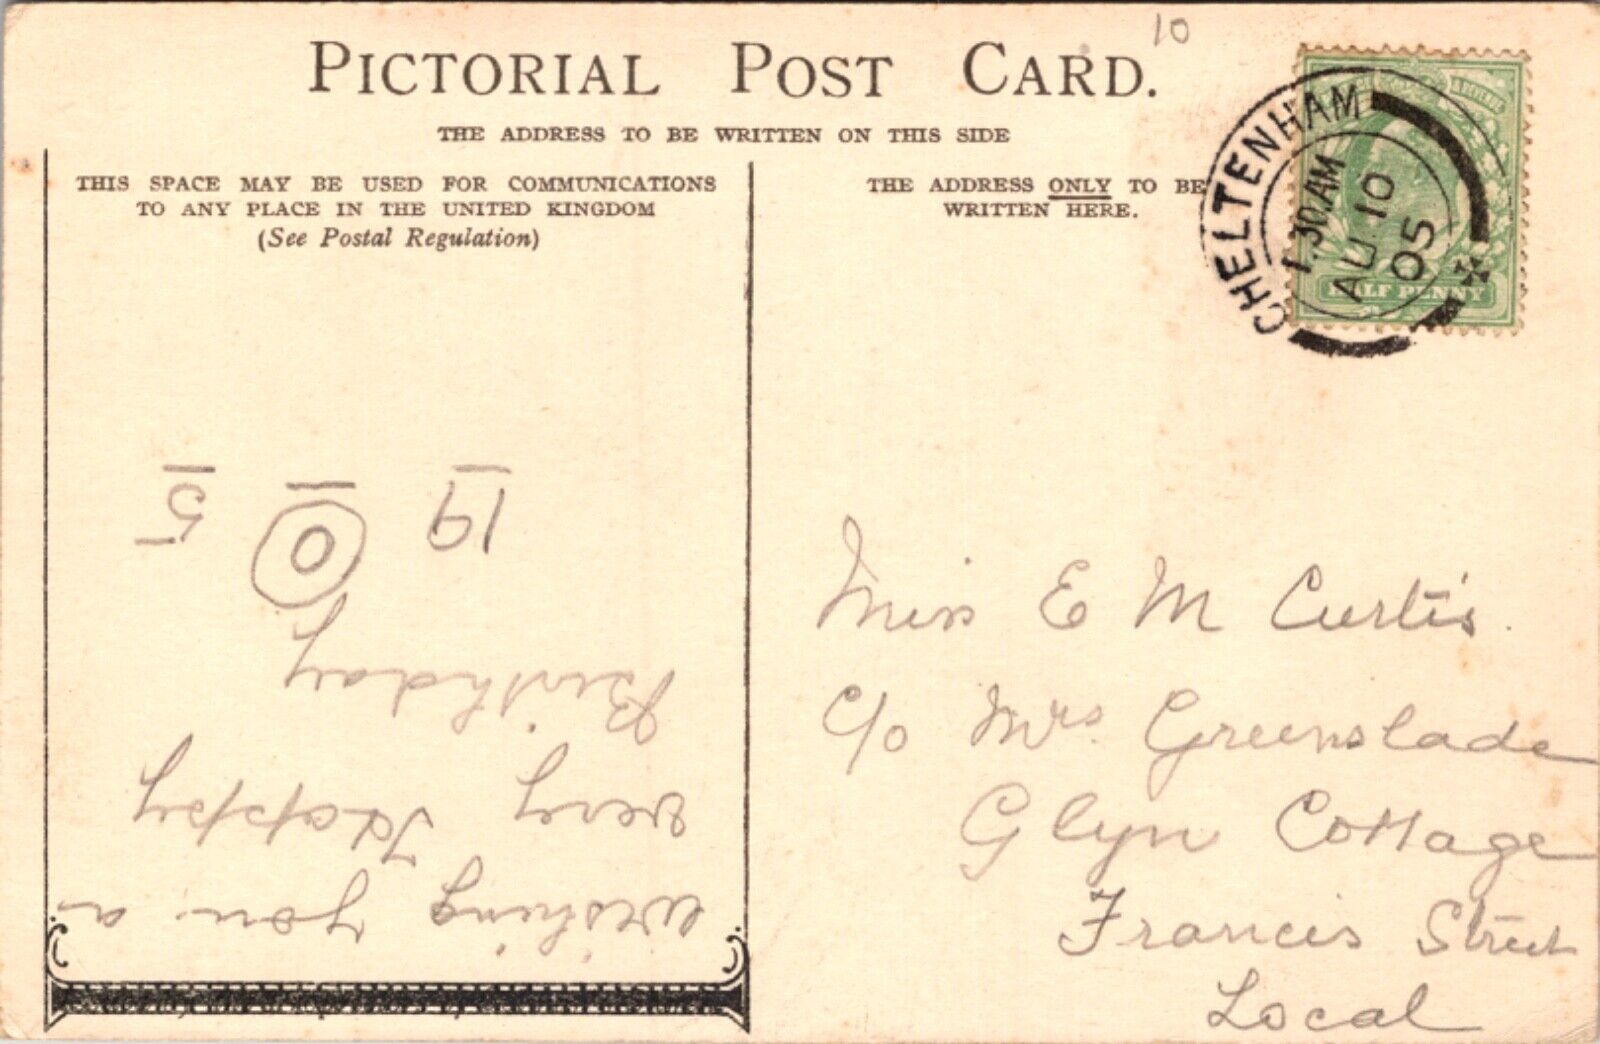 10
PICTORIAL POST CARD.
THE ADDRESS TO BE WRITTEN ON THIS SIDE
THIS SPACE MAY BE USED FOR COMMUNICATIONS
TO ANY PLACE IN THE UNITED KINGDOM
(See Postal Regulation)
wishing you a
very Happy
Birthday
19 0 5
THE ADDRESS ONLY TO BE
WRITTEN HERE.
CHELTENHAM
1.30 AM
AU 10
05
& REVENUE
HALF PENNY
Miss E M Curtis.
c/o Mrs. Greenslade
Glyn Cottage
Francis Street
Local